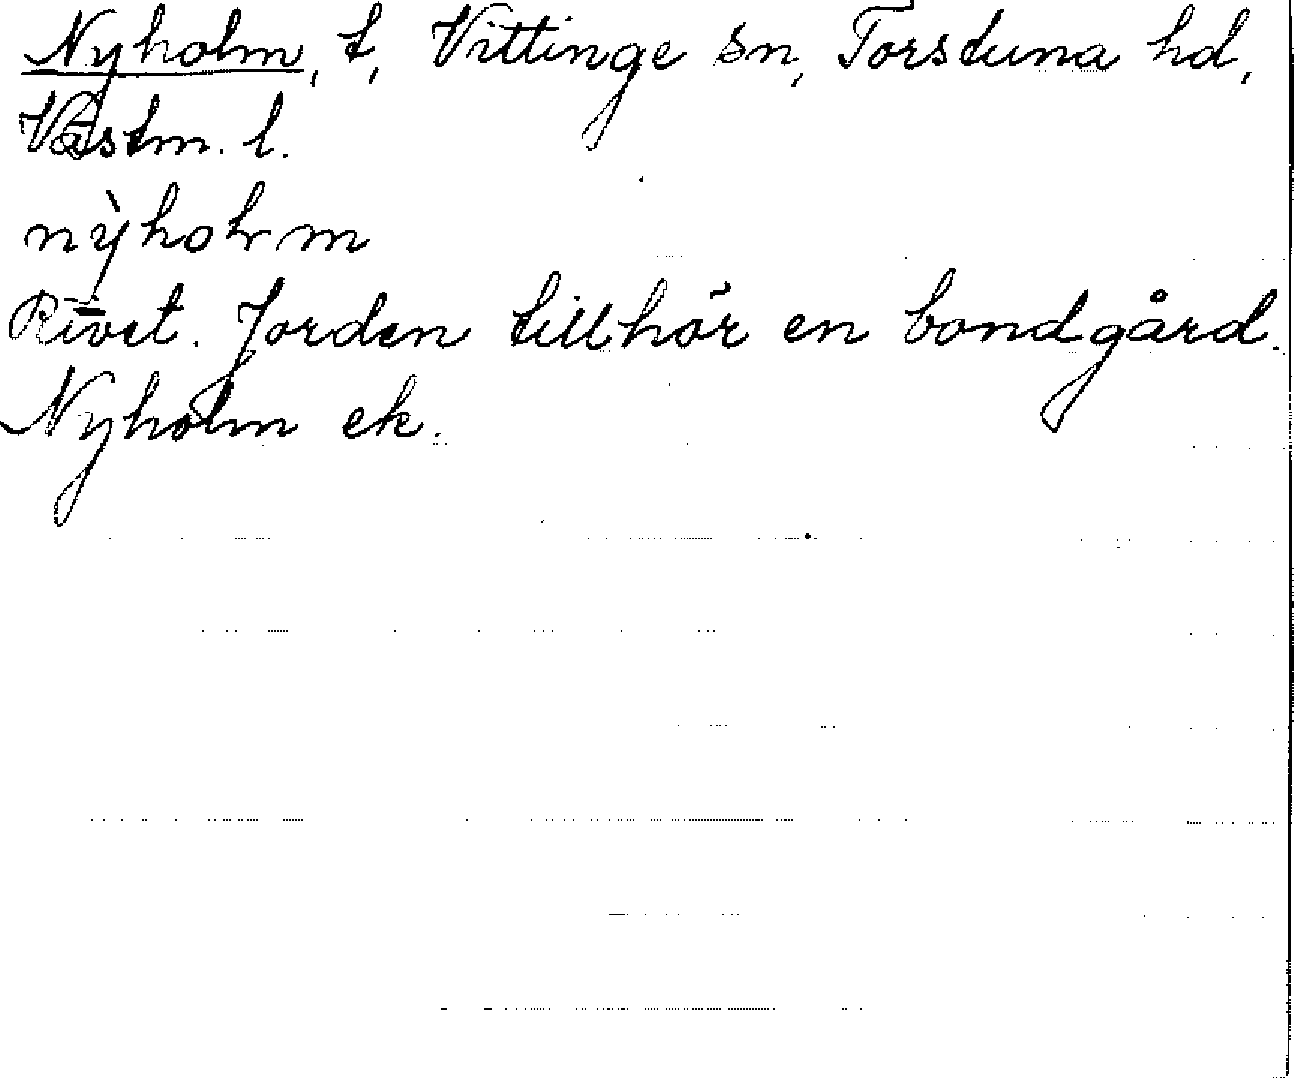 Nyholm, t, Vittinge sn, Torstuna hd,
Västm. l.
nỳhoƚm
Rivet. Jorden tillhör en bondgård.
Nyholm ek.